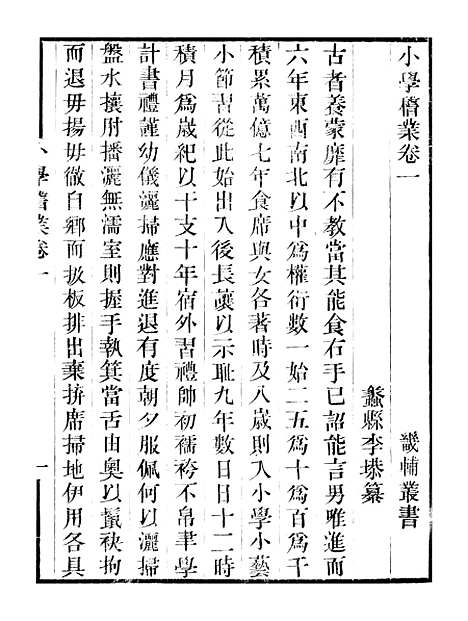 小學稽業卷一　畿輔叢書
蠡縣李塨纂
古者養蒙靡有不教當其能食右手已詔能言男唯進而
六年東西南北以中爲權衍數一始二五爲十爲百爲千
積累萬億七年食席與女各著時及八歲則入小學小藝
小節習從此始出入後長讓以示恥九年數日日十二時
積月爲歲紀以干支十年宿外習禮師初襦袴不帛聿學
計書禮謹幼儀灑掃應對進退有度朝夕服佩何以灑掃
盤水攘肘播灑無濡室則握手執箕當舌由奧以鬣袂拘
而退毋揚毋徹自鄉而扱板排出棄擠席掃地伊用各具
小學稽業卷一　一